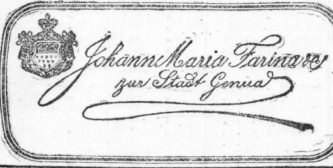 Johann Maria Farina
zur Stadt Genua